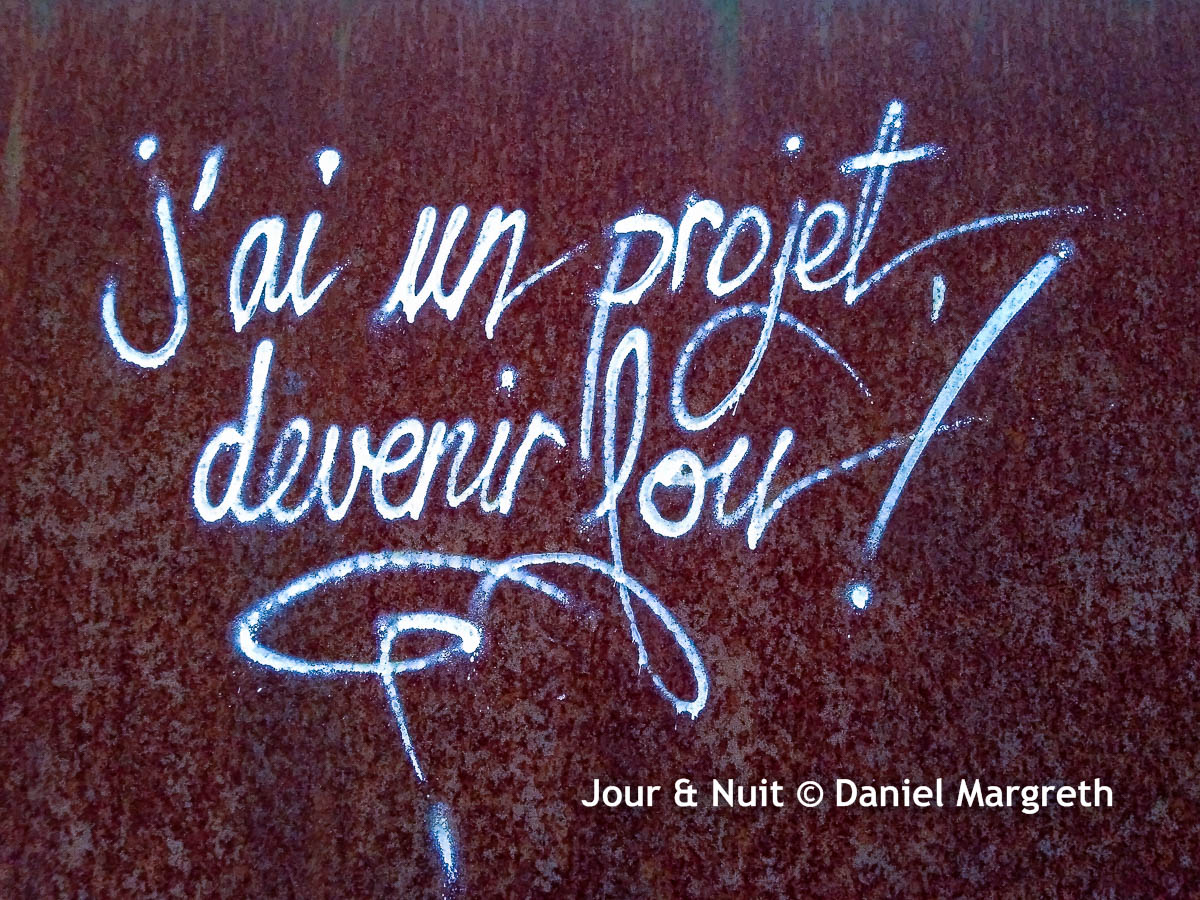 j'ai un projet,
devenir fou !
Jour & Nuit © Daniel Margreth